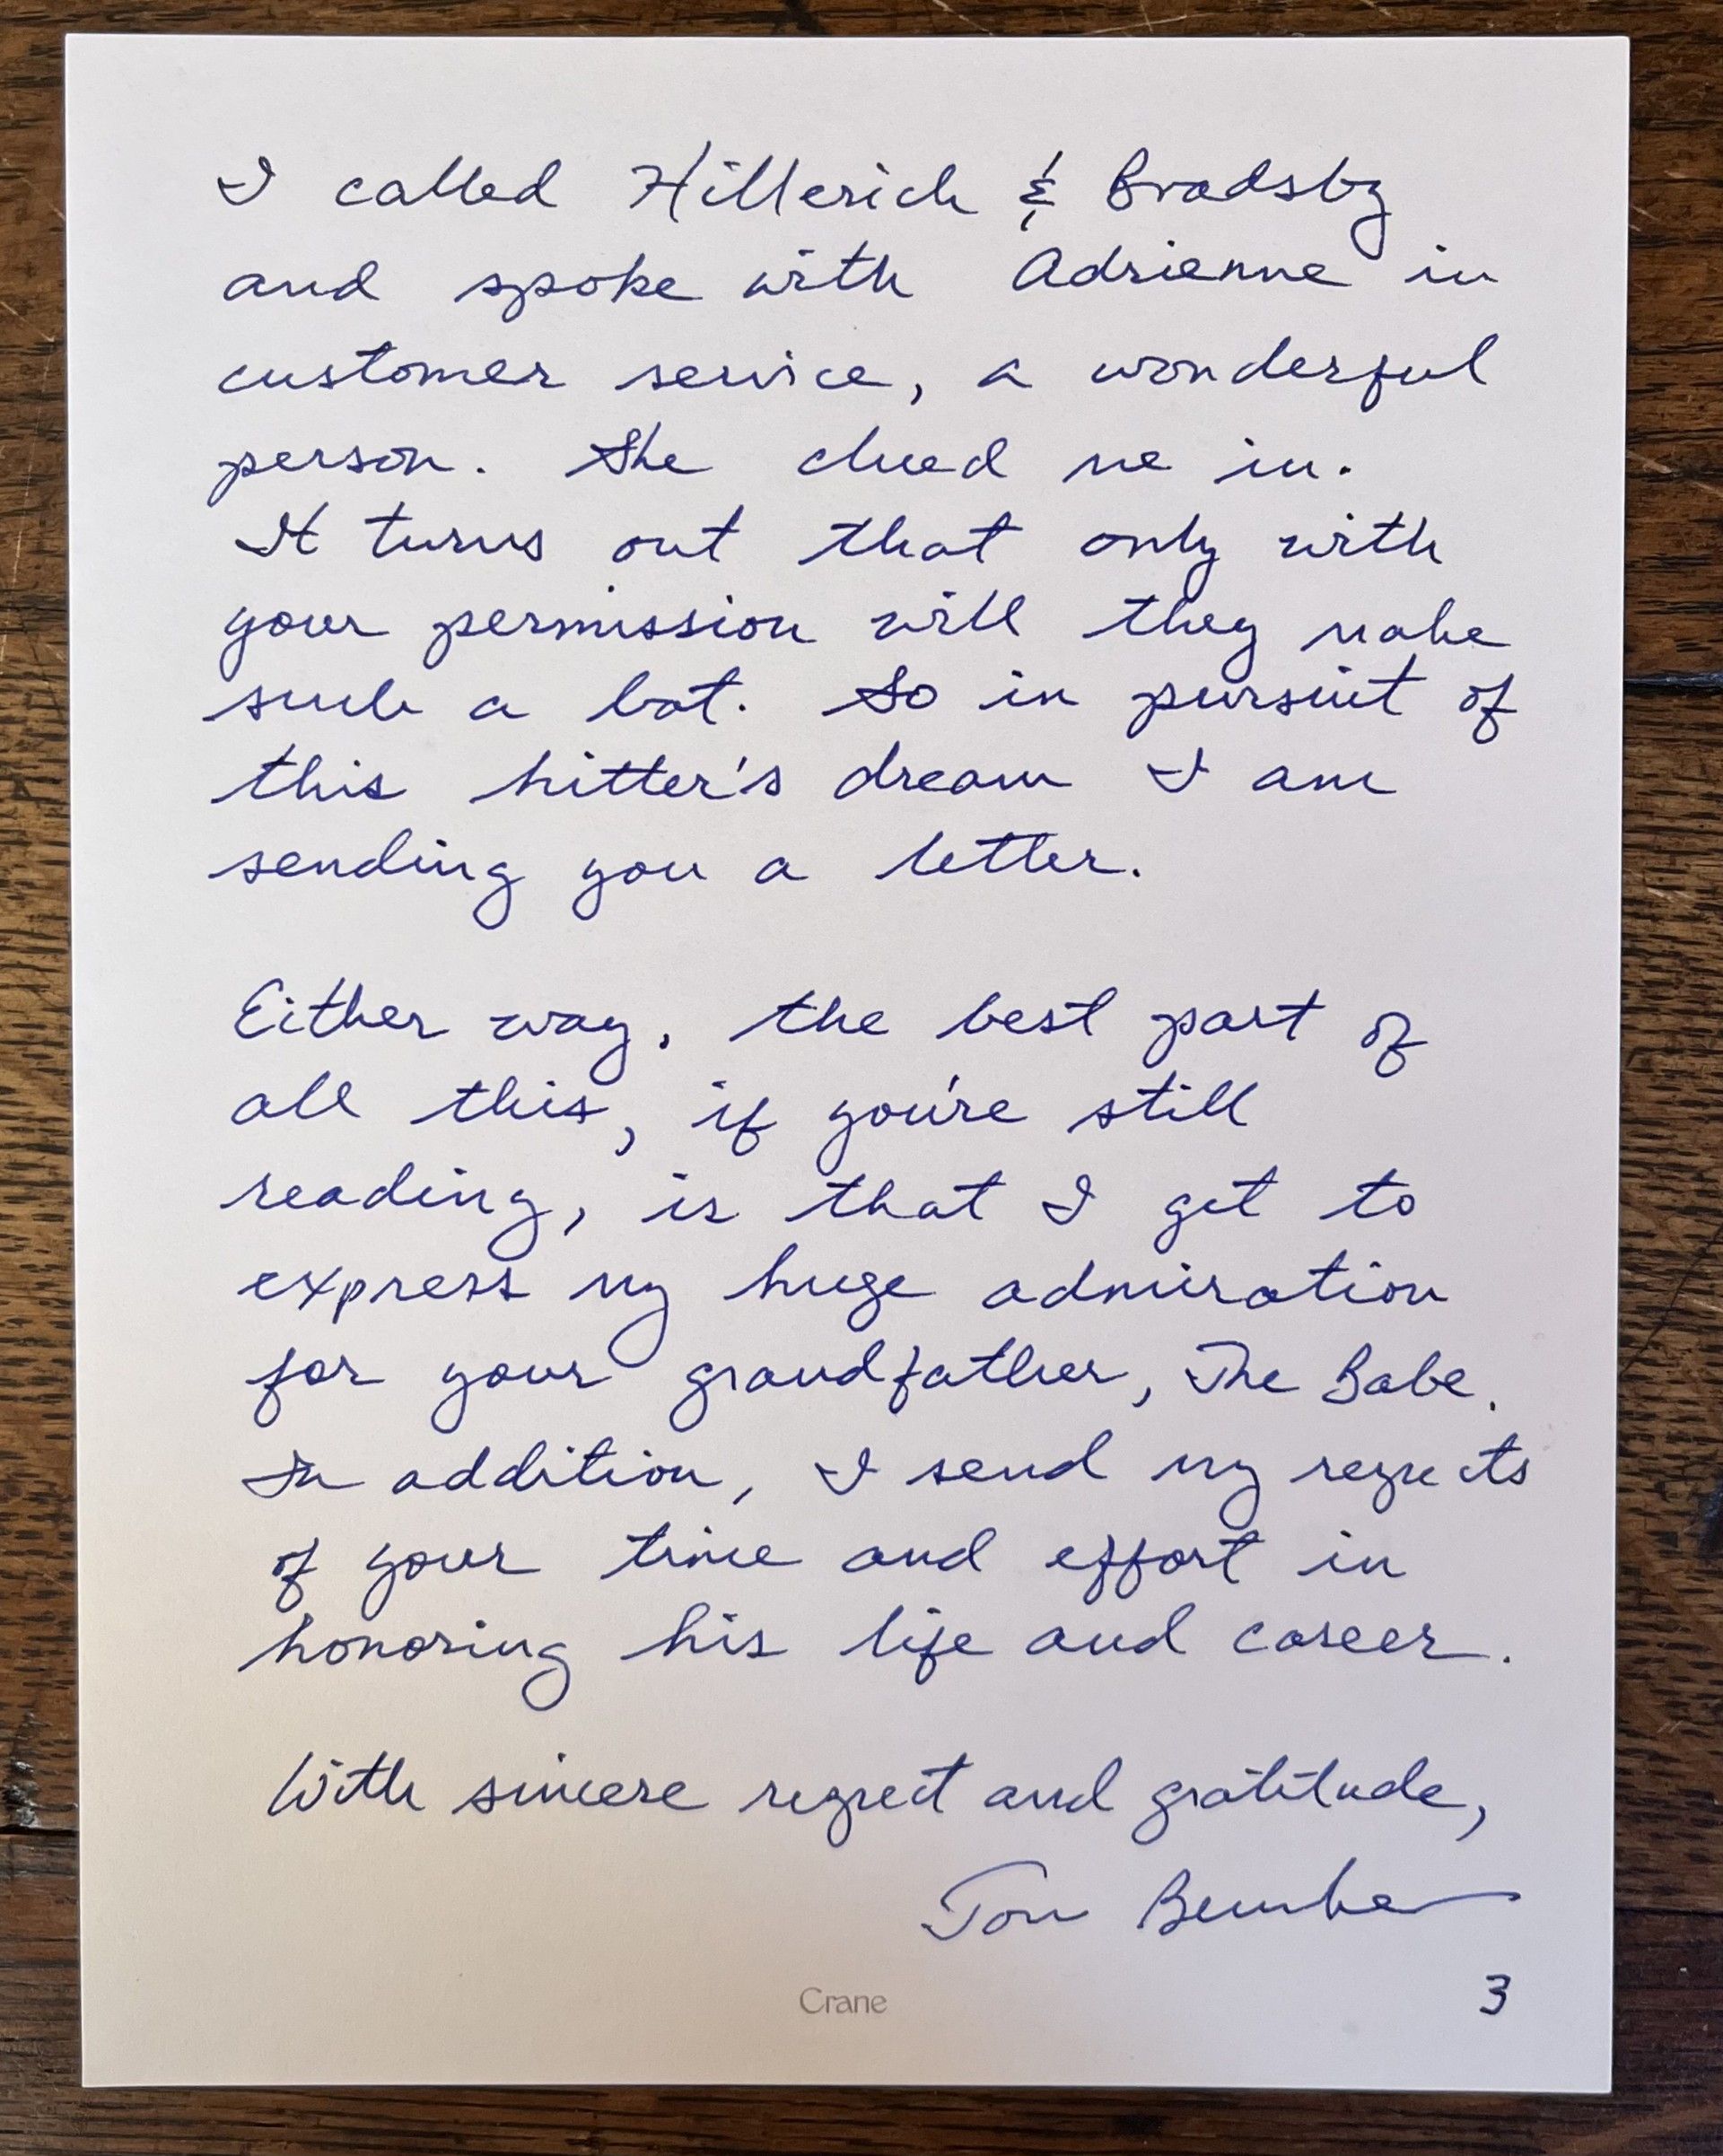 I called Hillerich & Bradsby
and spoke with Adrienne in
customer service, a wonderful
person. She clued me in.
It turns out that only with
your permission will they make
such a bat. So in pursuit of
this hitter's dream I am
sending you a letter.
Either way, the best part of
all this, if you're still
reading, is that I get to
express my huge admiration
for your grandfather, The Babe.
In addition, I send my respects
of your time and effort in
honoring his life and career.
With sincere respect and gratitude,
Tom
Crane
3